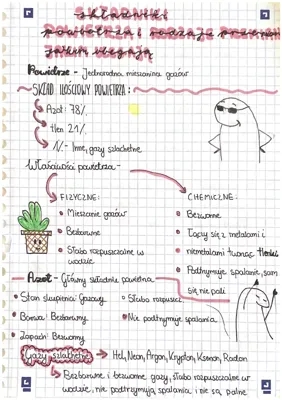 składniki
powietrza i rodzaje przemian
jakim ulegają
Powietrze - Jednorodna mieszanina gazów
SKŁAD ILOŚCIOWY POWIETRZA:
Azot: 78%
tlen 21%
Inne, gazy szlachetne
Właściwości powietrza -
FIZYCZNE:
• Mieszanie gazów
• Bezbarwne
• Słabo rozpuszczalne w
wodzie
CHEMICZNE:
• Bezwonne
• Łączy się z metalami i
niemetalami tworząc tlenki
• Podtrzymuje spalanie, sam
się nie pali
Azot - Główny składnik powietrza
• Stan skupienia: Gazowy
• Barwa: Bezbarwny
• Zapach: Bezwonny
• Słabo rozpuszcz.
• Nie podtrzymuje spalania
Gazy szlachetne → Hel, Neon, Argon, Krypton, Ksenon, Radon
Bezbarwne i bezwonne, gazy, słabo rozpuszczalne w
wodzie, nie podtrzymują spalania i nie są palne.